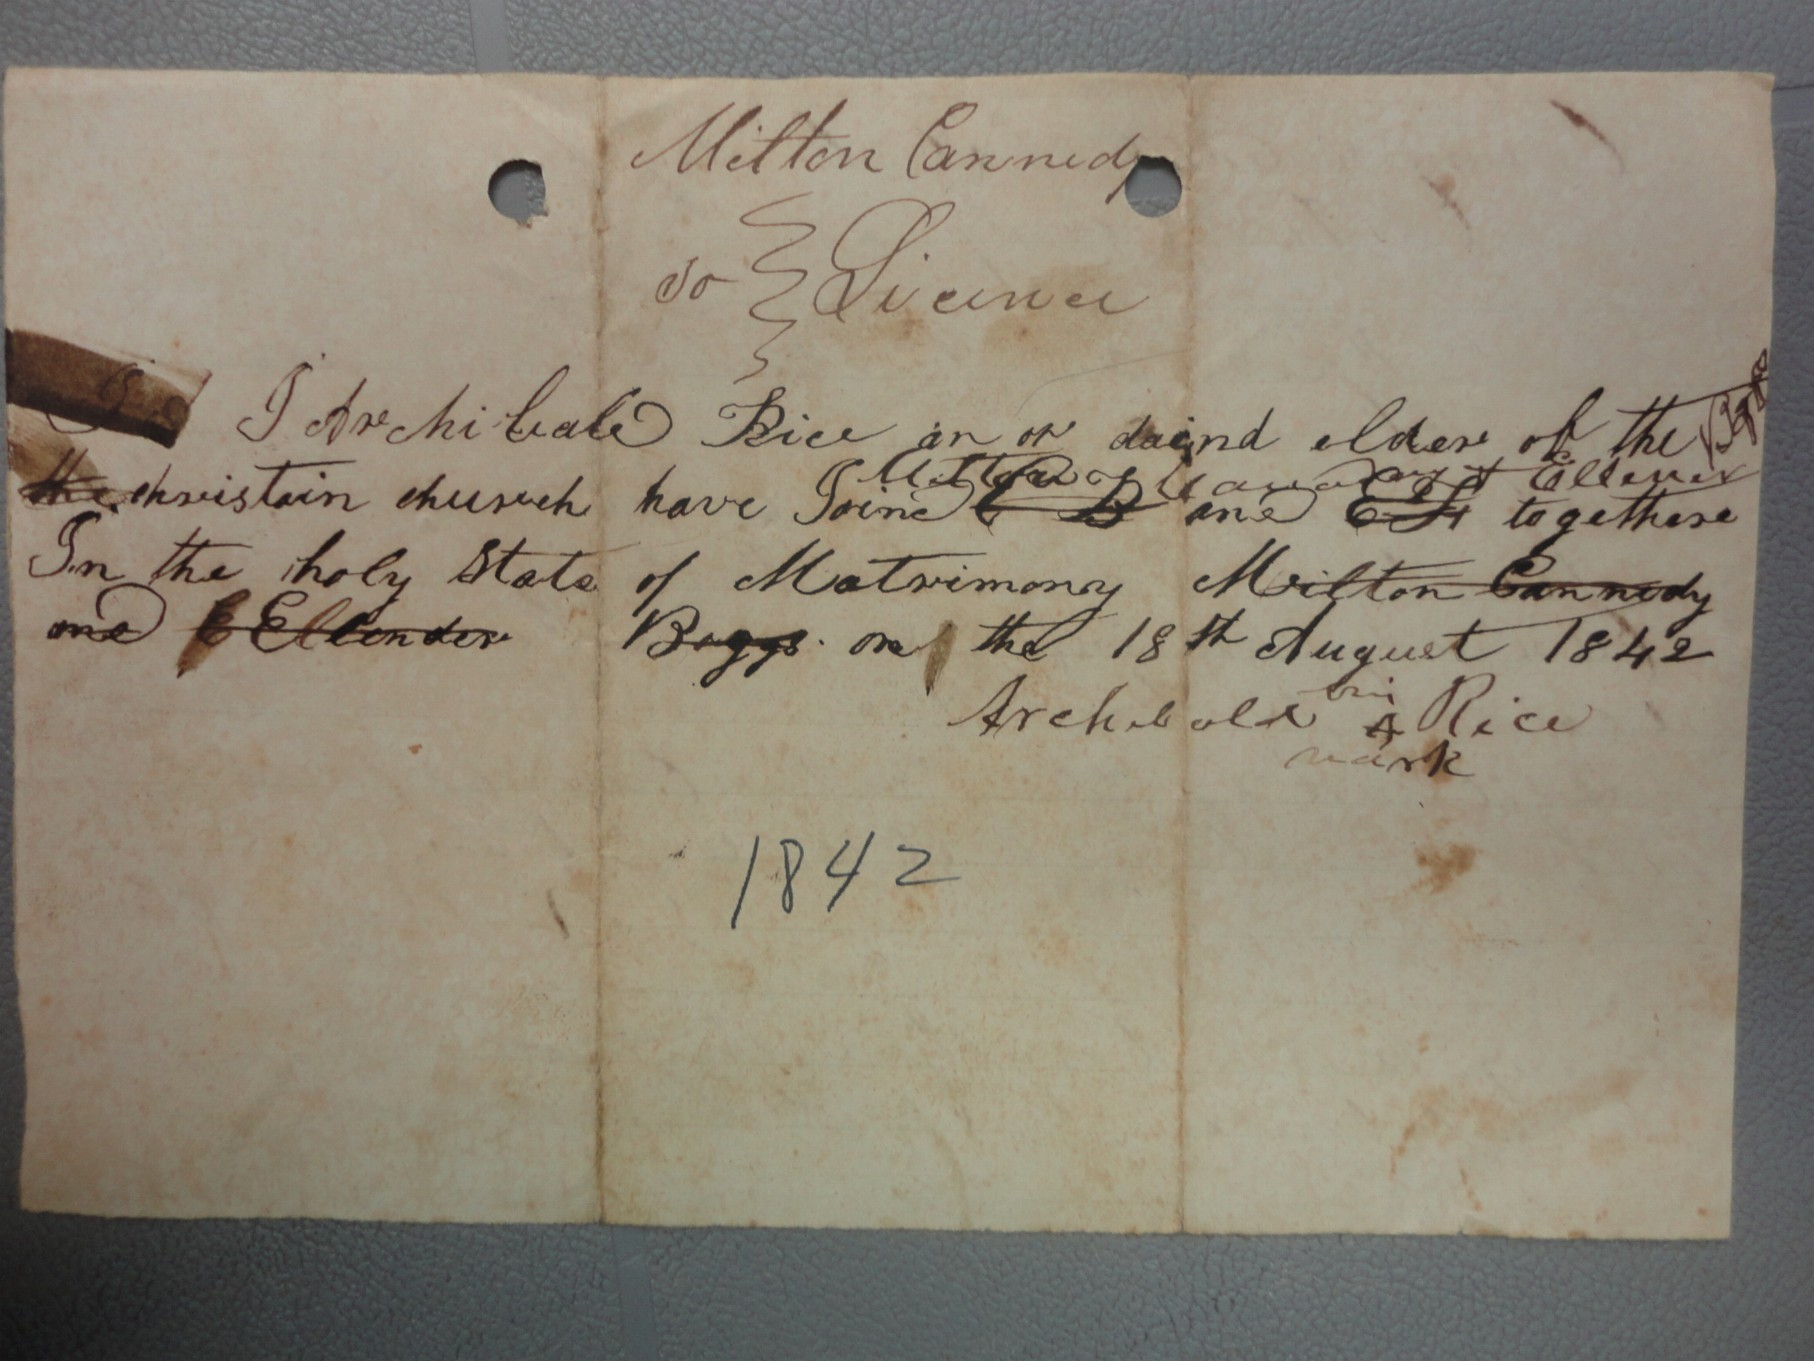 Milton Cannedy
to Licence
I Archibald Rice an or daind elder of the
Milton Cannady & Ellener Boggs
the christain church have Joind and togethere
In the holy State of Matrimony Milton Cannedy
and E Ellender Boggs on the 18th August 1842
his
Archibald A Rice
mark
1842